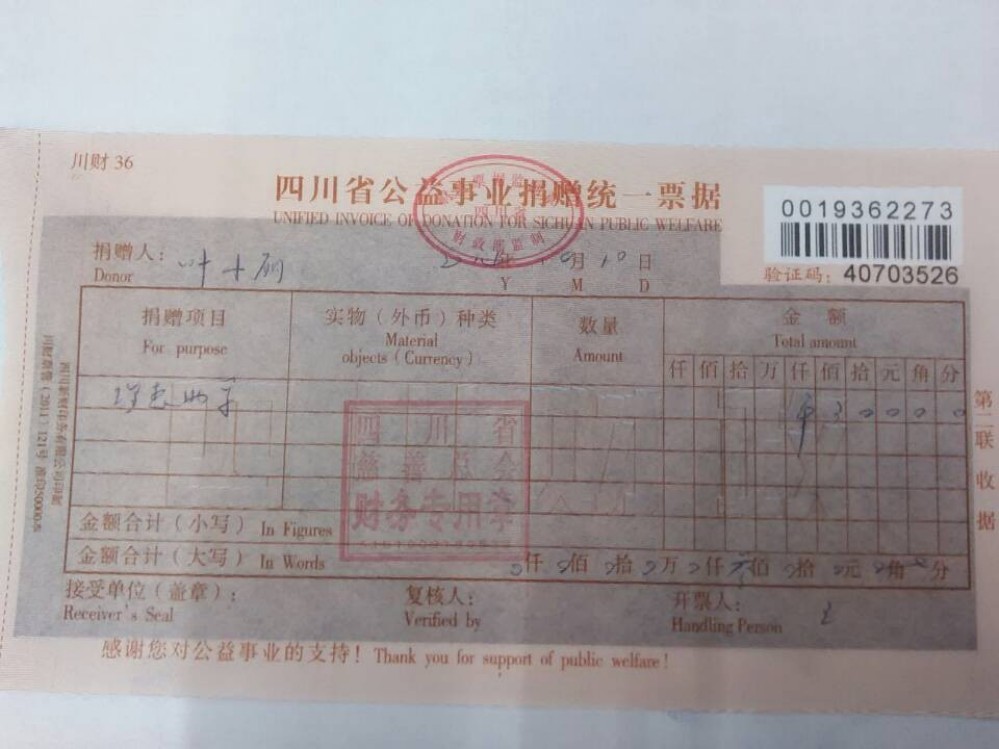 川财 36
四川省公益事业捐赠统一票据
UNIFIED INVOICE OF DONATION FOR SICHUAN PUBLIC WELFARE
四川省
财政部监制
0019362273
验证码：40703526
捐赠人： 叶
Donor
年 月 10 日
Y M D
捐赠项目
For purpose
实物（外币）种类
Material
objects (Currency)
数量
Amount
金额
Total amount
仟 佰 拾 万 仟 佰 拾 元 角 分
0 0 0 0
四川省
慈善总会
财务专用章
金额合计（小写） In Figures
金额合计（大写） In Words
仟 佰 拾 万 仟 佰 拾 元 角 分
接受单位（盖章）：
Receiver's Seal
复核人：
Verified by
开票人：
Handling Person
感谢您对公益事业的支持！ Thank you for support of public welfare!
第二联 收据